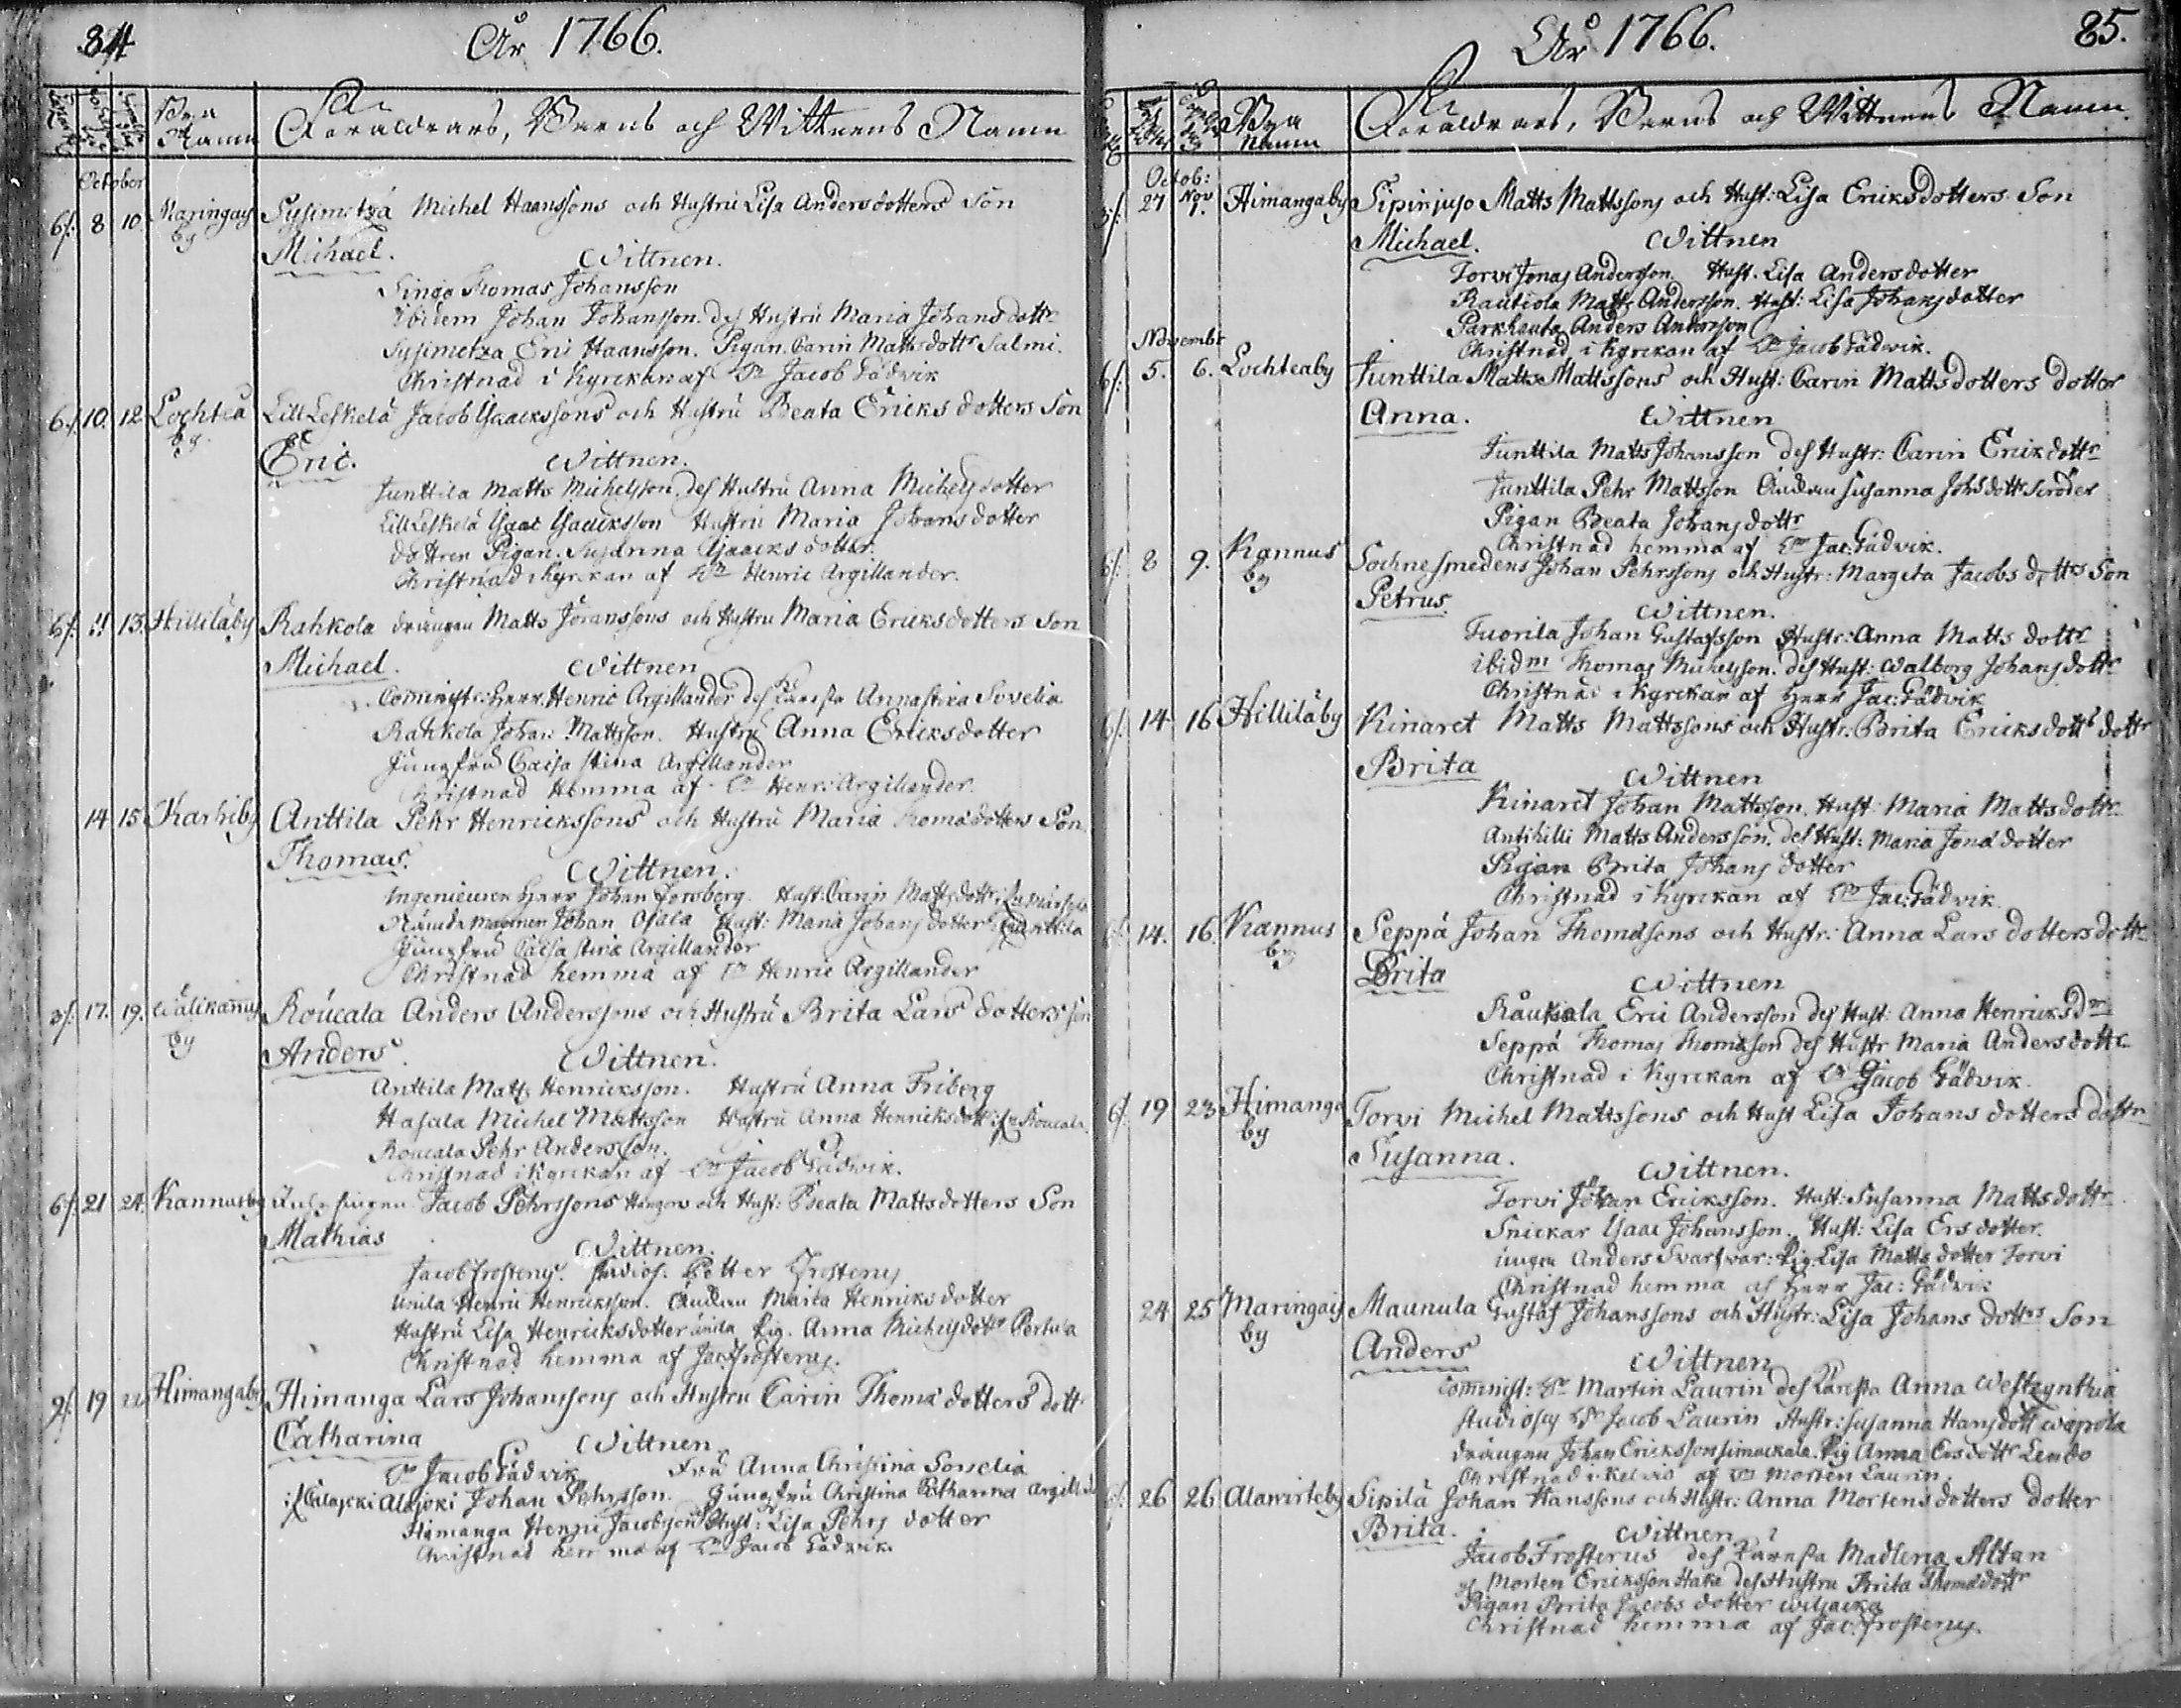 84
År 1766.
Bya Namn
Föräldrars, Barns och Wittnens Namn
October
6/: 8 10 Maringais by Sysimetzä Michel Haanssons och Hustru Lisa Andersdotters Son
Michael. Wittnen.
Singo Thomas Johansson
ibidem Johan Johansson. des Hustru Maria Johans dottr
Sysimetza Eric Haansson. Pigan Carin Matts dottr Salmi.
Christnad i Kyrckan af Hr Jacob Gådwik
6/: 10. 12 Lochteå by. Lill Leskelä Jacob Isaackssons och Hustru Beata Ericks dotters Son
Eric. Wittnen.
Junttila Matts Michelsson, des Hustru Anna Michels dotter
Lill Leskelä Isaac Isaacksson Hustru Maria Johans dotter
dottren Pigan. Susanna Isaacks dotter.
Christnad i Kyrckan af Hr Henric Argillander.
6/: 11 13. Hillilåby Rahkola drängen Matts Joranssons och Hustru Maria Ericksdotters Son
Michael. Wittnen
Cominist: Herr Henric Argillander des Käresta Anna Stina Sovelia
Rahkola Johan Mattsson. Hustru Anna Ericksdotter
Jungfru Caisa Stina Argillander
Christnad Hemma af Hr Henr: Argillander.
14 15 Karhiby Anttila Pehr Henrickssons och Hustru Maria Thomædotters Son
Thomas. Wittnen.
Ingenieuren Herr Johan Forsberg. Hust: Carin Matts dottr
Nämdemannen Johan Ojala Hust: Maria Johans dotter Junttila
Jungfru Caisa Stina Argillander
Christnad hemma af Hr Henric Argillander
3/: 17. 19. Wälikannus by Roucala Anders Anderssons och Hustru Brita Lars dotters son
Anders. Wittnen.
Anttila Matts Henricksson. Hustru Anna Friberg
Hasala Michel Mattsson Hustru Anna Henricksdottr Roucala.
Roucala Pehr Andersson.
Christnad i Kyrckan af Hr Jacob Gådwik.
6/: 21 24. Kannusby Jacob Pehrssons och Hust: Beata Mattsdotters Son
Mathias Wittnen.
Jacob Frosterus. Studios: Petter Frosterus
Unila Henric Henricksson. Änckan Maria Henricks dotter
Hustru Lisa Henricksdotter Unila Pig. Anna Michels dottr Pertula
Christnad hemma af Jac: Frosterus.
9/: 19 Himangaby Himanga Lars Johanssons och Hustru Carin Thomæ dotters dottr
Catharina Wittnen
Hr Jacob Gådwik Fru Anna Christina Sovelia
Alajoki Johan Pehrsson. Jungfru Christina Catharina Argilland
Himanga Henric Jacobsson Hust: Lisa Pehrs dotter
Christnad hemma af Hr Jacob Gådwik.
År 1766.
85.
Bya Namn
Föräldrars, Barns och Wittnens Namn.
Octob:
3/: 27 Nov 1. Himangaby Sipinjuso Matts Mattssons och Hust: Lisa Ericksdotters Son
Michael. Wittnen
Torvi Jonas Andersson Hust. Lisa Andersdotter
Rautiola Matts Andersson. Hust: Lisa Johansdotter
Parkkauta Anders Andersson
Christnad i Kyrckan af Hr Jacob Gådwik.
Novembr
6/: 5. 6. Lochteaby Junttila Matts Mattssons och Hust: Carin Mattsdotters dotter
Anna. Wittnen
Junttila Matts Johansson des Hustr: Carin Erixdottr
Junttila Pehr Mattsson Änckan Susanna Johsdottr Scroder
Pigan Beata Johans dottr
Christnad hemma af Hr Jac: Gådwik.
6/: 8 9. Kannus by Sochne smedens Johan Pehrssons och Hustr: Margeta Jacobs dottrs Son
Petrus. Wittnen.
Tuorila Johan Gustafsson Hustr: Anna Matts dottr
ibidm Thomas Michelsson. des Hust: Walborg Johans dottr
Christnad i Kyrckan af Herr Jac: Gådwik
6/: 14 16 Hillilåby Kinaret Matts Mattssons och Hustr: Brita Ericksdottrs dottr
Brita Wittnen
Kinaret Johan Mattsson. Hust: Maria Mattsdottr
Antihilli Matts Andersson. des Hust: Maria Jonæ dotter
Pigan Brita Johans dotter
Christnad i Kyrckan af Hr Jac: Gådwik
6/: 14. 16. Kannus by Seppä Johan Thomæsons och Hustr: Anna Lars dotters dottr
Brita Wittnen
Rautiola Eric Andersson des Hust: Anna Henricksdr
Seppä Thomas Thomæson des Hustr Maria Andersdottr
Christnad i Kyrckan af Hr Jacob Gådwik.
6/: 19 23 Himanga by Torvi Michel Mattssons och Hust Lisa Johans dotters dottr
Susanna. Wittnen.
Torvi Johan Ericksson. Hust: Susanna Mattsdottr
Snickar Isaac Johansson. Hust: Lisa Ers dotter.
Anders Svartsvar: Pig. Lisa Matts dotter Torvi
Christnad hemma af Herr Jac: Gådwik
24 25 Maringais by Maunula Gustaf Johanssons och Hustr: Lisa Johans dottrs Son
Anders Wittnen
Cominist: Hr Martin Laurin des Käresta Anna Westzynthia
Studiosus Hr Jacob Laurin Hustr: Susanna Hansdottr
drängen Johan Ericksson Simackala. Pig Anna Ersdottr Lendo
Christnad i Kelvio af Hr Morten Laurin.
6/: 26 26 Alawirteby Sipilä Johan Hanssons och Hustr: Anna Mortens dotters dotter
Brita. Wittnen
Jacob Frosterus des Käresta Madlena Altan
Morten Ericksson Hake des Hustru Brita Thomædottr
Pigan Brita Jacobs dotter Wiljacka
Christnad hemma af Jac: Frosterus.